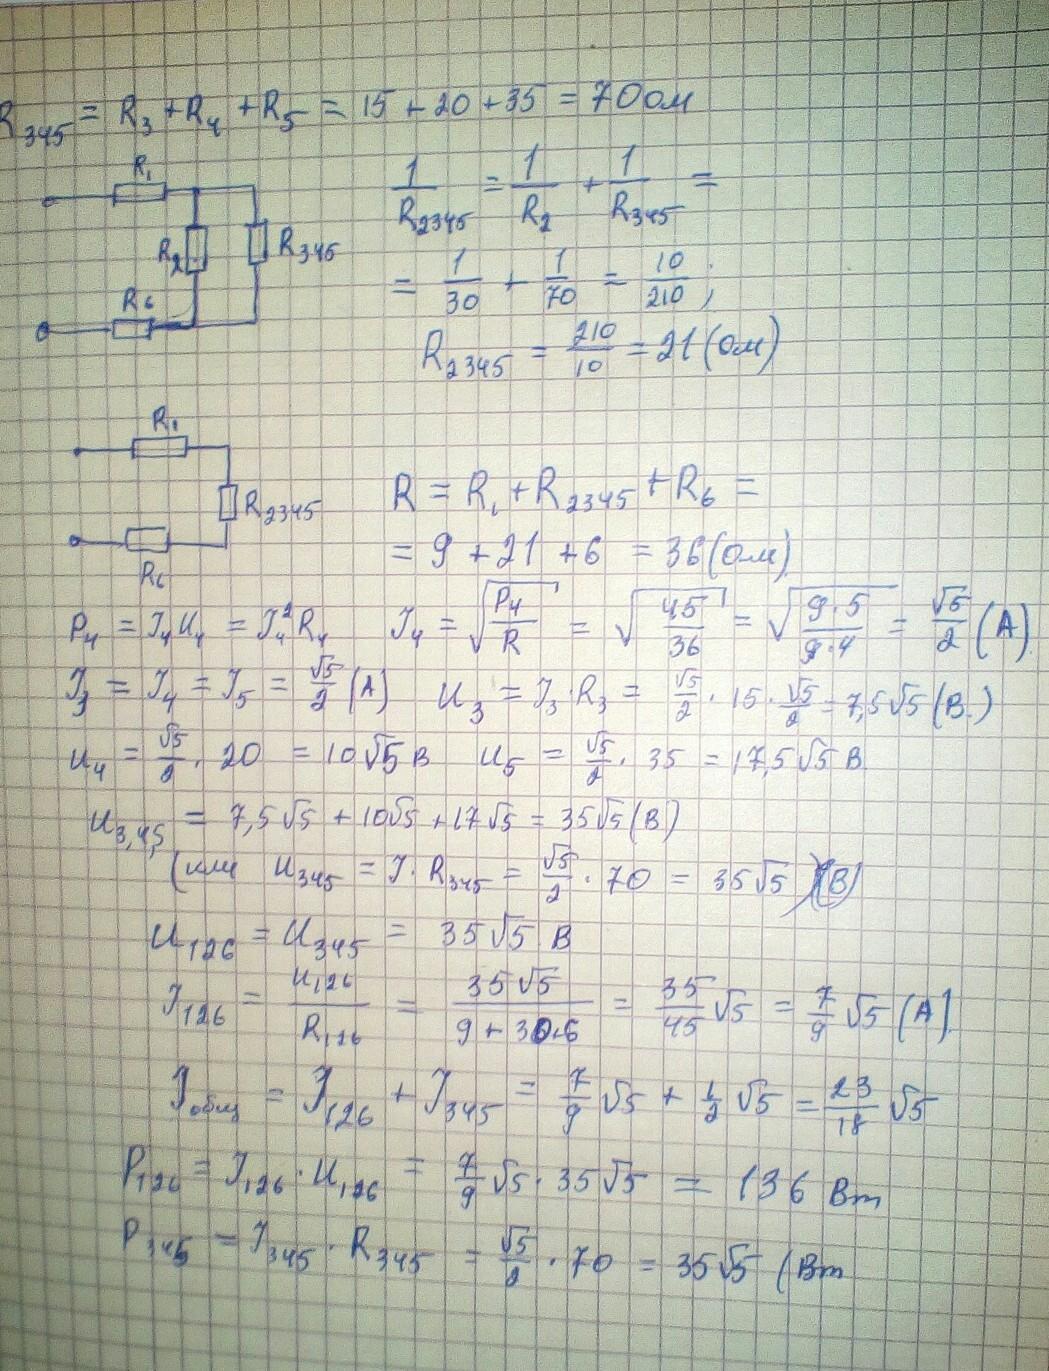 R₃₄₅ = R₃ + R₄ + R₅ = 15 + 20 + 35 = 70 ом
R₁
R₂
R₃₄₅
R₆
1/R₂₃₄₅ = 1/R₂ + 1/R₃₄₅ =
= 1/30 + 1/70 = 10/210 ;
R₂₃₄₅ = 210/10 = 21 (ом)
R₁
R₂₃₄₅
R₆
R = R₁ + R₂₃₄₅ + R₆ =
= 9 + 21 + 6 = 36 (ом)
P₄ = I₄ U₄ = I₄² R₄ I₄ = √(P₄/R) = √(45/36) = √(9·5/9·4) = √5/2 (А)
I₃ = I₄ = I₅ = √5/2 (А) U₃ = I₃ · R₃ = √5/2 · 15 · √5/2 = 7,5√5 (В.)
U₄ = √5/2 · 20 = 10√5 В U₅ = √5/2 · 35 = 17,5√5 В
U₃,₄,₅ = 7,5√5 + 10√5 + 17√5 = 35√5 (В)
(или U₃₄₅ = I · R₃₄₅ = √5/2 · 70 = 35√5 )(В)
U₁₂₆ = U₃₄₅ = 35√5 В
I₁₂₆ = U₁₂₆/R₁₂₆ = 35√5/(9 + 30+6) = 35/45 √5 = 7/9 √5 (А)
Iобщ = I₁₂₆ + I₃₄₅ = 7/9 √5 + 1/2 √5 = 23/18 √5
P₁₂₆ = I₁₂₆ · U₁₂₆ = 7/9 √5 · 35√5 = 136 Вт
P₃₄₅ = I₃₄₅ · R₃₄₅ = √5/2 · 70 = 35√5 (Вт